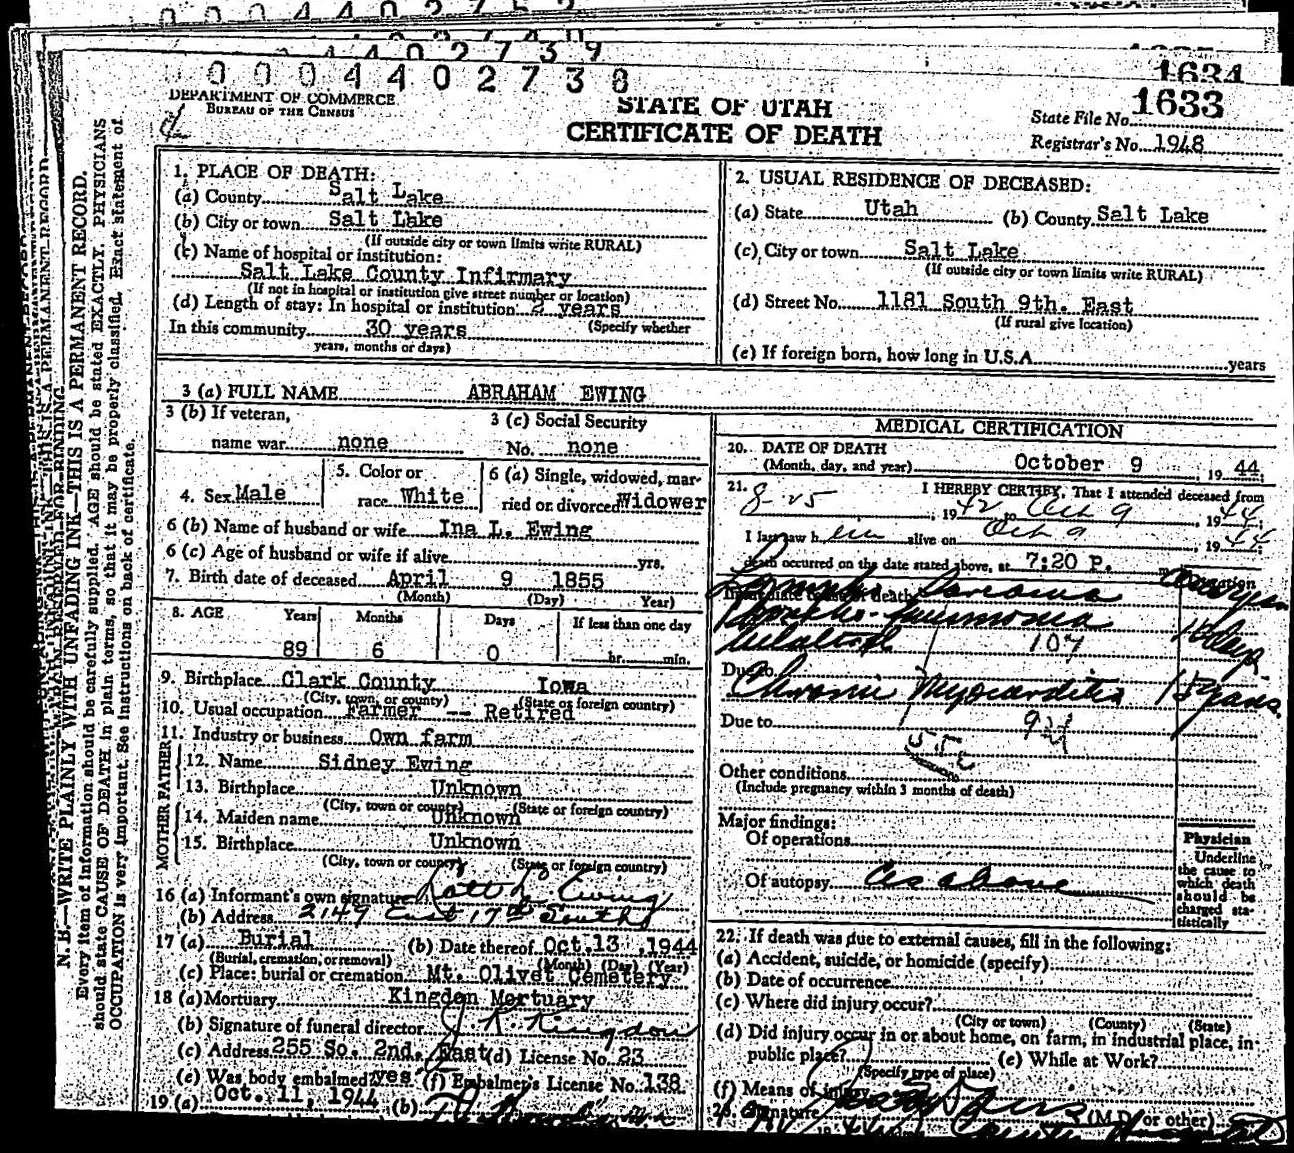 0 0 0 4 4 0 2 7 3 9
0 0 0 4 4 0 2 7 3 8
1634
1633
DEPARTMENT OF COMMERCE
BUREAU OF THE CENSUS
STATE OF UTAH
CERTIFICATE OF DEATH
State File No.
Registrar's No. 1948
N. B.—WRITE PLAINLY WITH UNFADING INK—THIS IS A PERMANENT RECORD.
Every item of information should be carefully supplied. AGE should be stated EXACTLY. PHYSICIANS
should state CAUSE OF DEATH in plain terms, so that it may be properly classified. Exact statement of
OCCUPATION is very important. See instructions on back of certificate.
1. PLACE OF DEATH:
(a) County Salt Lake
(b) City or town Salt Lake
(If outside city or town limits write RURAL)
(c) Name of hospital or institution:
Salt Lake County Infirmary
(If not in hospital or institution give street number or location)
(d) Length of stay: In hospital or institution 2 years
In this community 30 years (Specify whether
years, months or days)
2. USUAL RESIDENCE OF DECEASED:
(a) State Utah (b) County Salt Lake
(c) City or town Salt Lake
(If outside city or town limits write RURAL)
(d) Street No. 1181 South 9th. East
(If rural give location)
(e) If foreign born, how long in U.S.A. years
3 (a) FULL NAME ABRAHAM EWING
3 (b) If veteran,
name war none
3 (c) Social Security
No. none
4. Sex Male
5. Color or
race White
6 (a) Single, widowed, mar-
ried or divorced Widower
6 (b) Name of husband or wife Ina L. Ewing
6 (c) Age of husband or wife if alive yrs.
7. Birth date of deceased April 9 1855
(Month) (Day) Year)
8. AGE Years Months Days If less than one day
89 6 0 hr. min.
9. Birthplace Clark County Iowa
(City, town, or county) (State or foreign country)
10. Usual occupation Farmer -- Retired
11. Industry or business Own farm
FATHER
12. Name Sidney Ewing
13. Birthplace Unknown
(City, town or county) (State or foreign country)
MOTHER
14. Maiden name Unknown
15. Birthplace Unknown
(City, town or county) (State or foreign country)
16 (a) Informant's own signature Ewing
(b) Address 2149 East 17th South
17 (a) Burial (b) Date thereof Oct.13 ,1944
(Burial, cremation, or removal) (Month) (Day) (Year)
(c) Place: burial or cremation Mt. Olivet Cemetery
18 (a) Mortuary Kingdon Mortuary
(b) Signature of funeral director J. R. Kingdon
(c) Address 255 So. 2nd. East (d) License No. 23
(e) Was body embalmed yes (f) Embalmer's License No. 138
19 (a) Oct. 11, 1944 (b)
MEDICAL CERTIFICATION
20. DATE OF DEATH
(Month, day, and year) October 9 , 19 44
21. I HEREBY CERTIFY, That I attended deceased from
8-25 , 19 42 to Oct 9 , 19 44;
I last saw h im alive on Oct 9 , 19 44
Death occurred on the date stated above, at 7:20 P. m
Immediate cause of death Duration
Broncho-Pneumonia 10 days
107
Due to
Chronic Myocarditis 15 years
Due to
Other conditions
(Include pregnancy within 3 months of death)
Major findings:
Of operations
Of autopsy As above
Physician
Underline
the cause to
which death
should be
charged sta-
tistically
22. If death was due to external causes, fill in the following:
(a) Accident, suicide, or homicide (specify)
(b) Date of occurrence
(c) Where did injury occur?
(City or town) (County) (State)
(d) Did injury occur in or about home, on farm, in industrial place, in
public place? (e) While at Work?
(Specify type of place)
(f) Means of injury
23. Signature (M.D. or other)